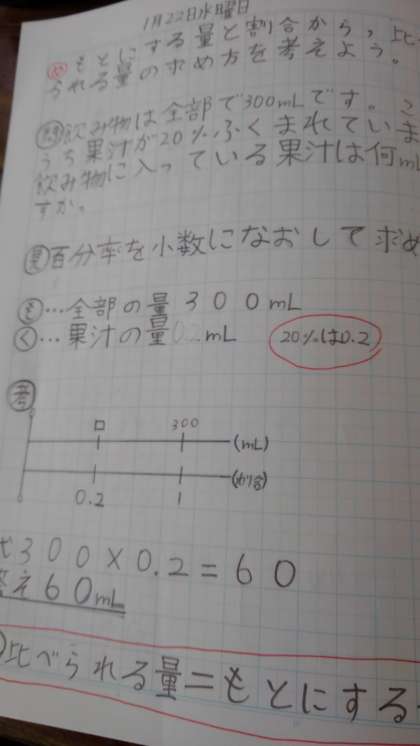 1月22日水曜日
め もとにする量と割合から,比べ
られる量の求め方を考えよう。
問 飲み物は全部で300mLです。こ
うち果汁が20%ふくまれていま
飲み物に入っている果汁は何mL
すか。
見 百分率を小数になおして求め
も…全部の量 300mL
く…果汁の量 mL
20%は0.2
考
□ 300 (mL)
0.2 1 (わり合)
式300×0.2=60
答え60mL
比べられる量=もとにする